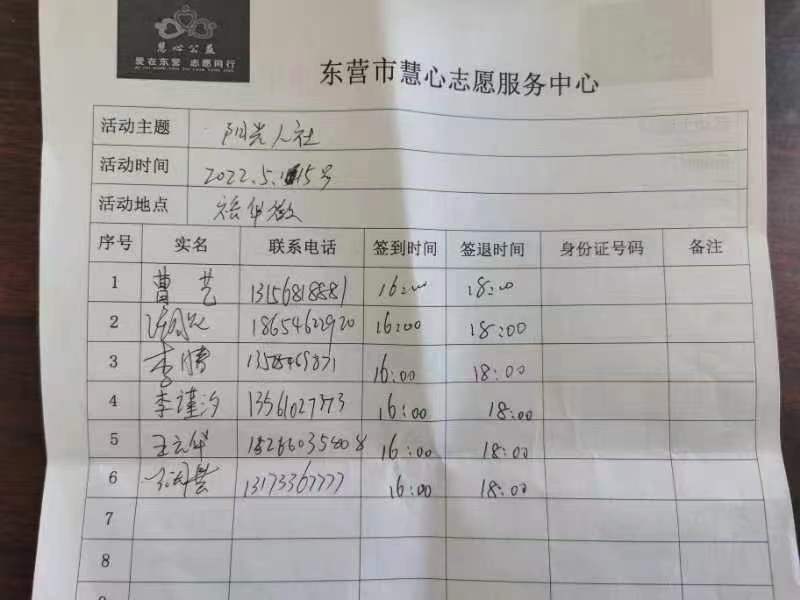 慧心公益
爱在东营 志愿同行
东营市慧心志愿服务中心
活动主题 阳光人社
活动时间 2022.5.15号
活动地点
序号 实名 联系电话 签到时间 签退时间 身份证号码 备注
1 曹艺 13156818881 16:00 18:00
2 18654622920 16:00 18:00
3 李腾 16:00 18:00
4 李谨汐 13561027773 16:00 18:00
5 王立华 16:00 18:00
6 13173367777 16:00 18:00
7
8